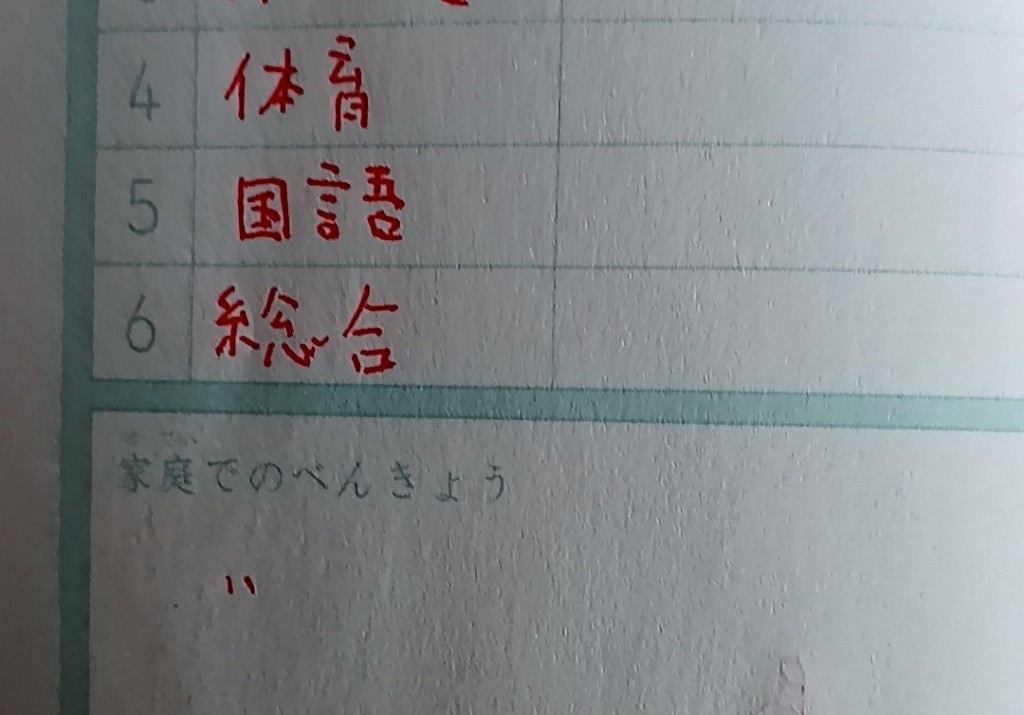 4 体育
5 国語
6 総合
家庭でのべんきょう
〃